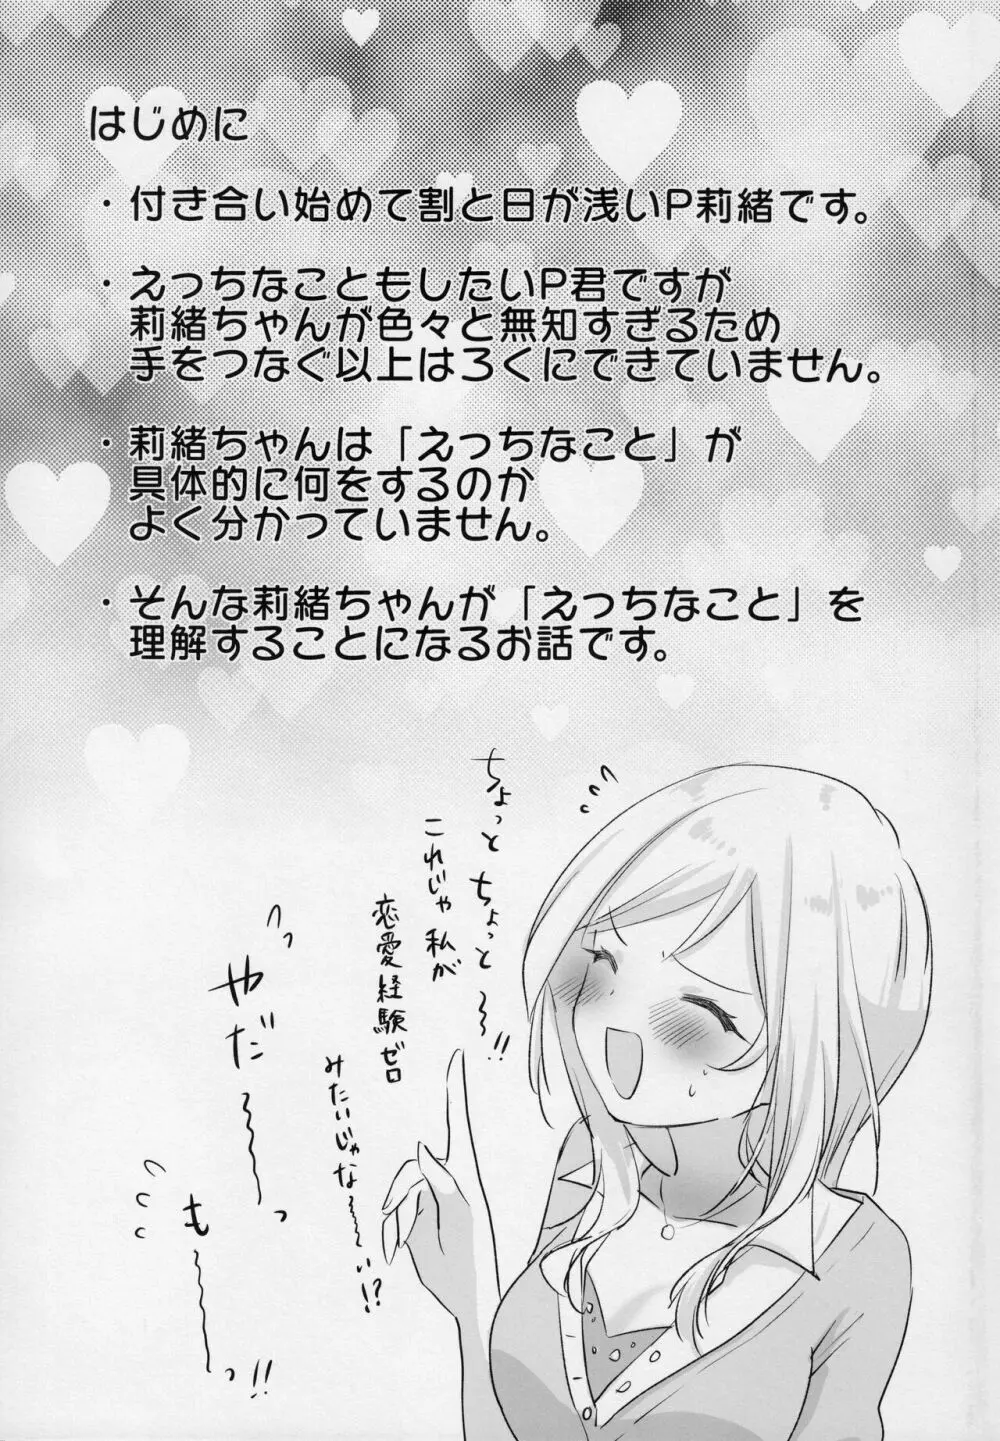 はじめに
・付き合い始めて割と日が浅いP莉緒です。
・えっちなこともしたいP君ですが
莉緒ちゃんが色々と無知すぎるため
手をつなぐ以上はろくにできていません。
・莉緒ちゃんは「えっちなこと」が
具体的に何をするのか
よく分かっていません。
・そんな莉緒ちゃんが「えっちなこと」を
理解することになるお話です。
ちょっとちょっと〜!!
これじゃ私が
恋愛経験ゼロ
みたいじゃな〜〜い!?
やだ〜〜っ
も〜〜っ!!